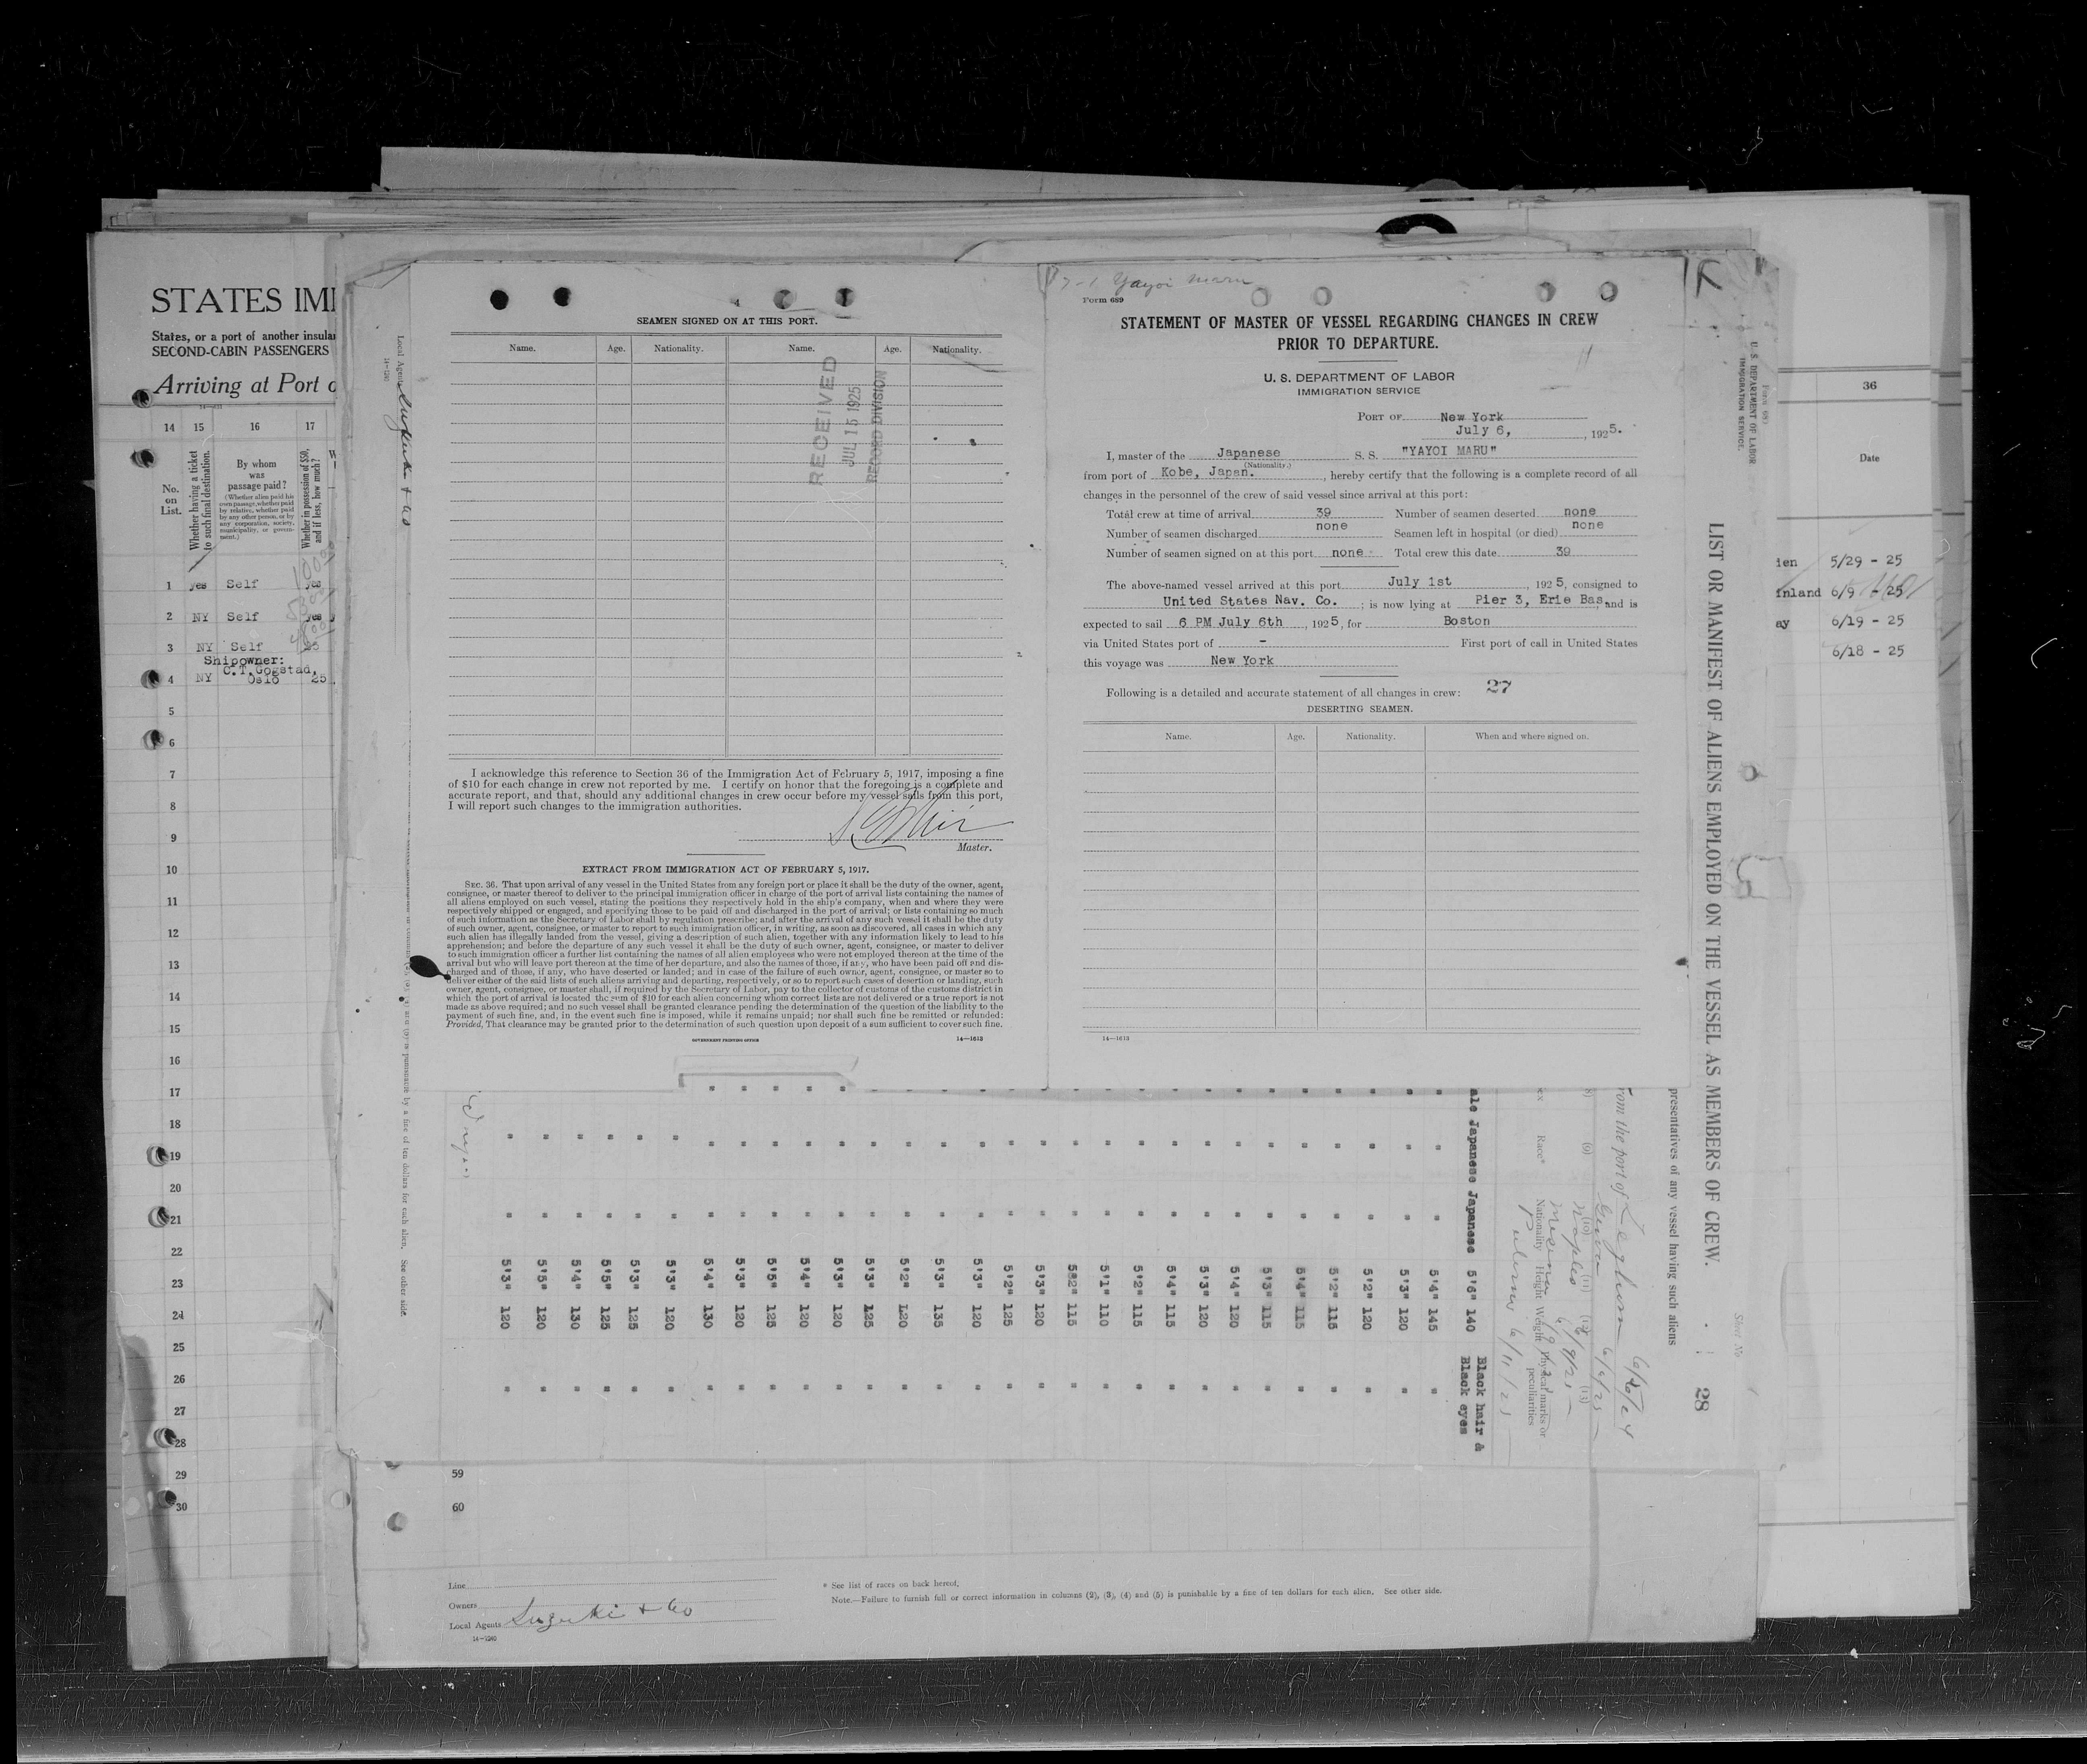 STATES IMI
States, or a port of another insular
SECOND-CABIN PASSENGERS
Arriving at Port o
14 15 16 17
No. on List.
Whether having a ticket to such final destination.
By whom was passage paid?
(Whether alien paid his own passage, whether paid by relative, whether paid by any other person, or by any corporation, society, municipality, or government.)
Whether in possession of $50, and if less, how much?
1 yes Self yes
2 NY Self yes
3 NY Self
Shipowner:
C.T. Gogstad,
4 NY Oslo 25
5
6
7
8
9
10
11
12
13
14
15
16
17
18
19
20
21
22
23
24
25
26
27
28
29
30
Local Agents Suzuki & Co
14-1240
SEAMEN SIGNED ON AT THIS PORT.
Name. Age. Nationality. Name. Age. Nationality.
RECEIVED
JUL 15 1925
RECORD DIVISION
I acknowledge this reference to Section 36 of the Immigration Act of February 5, 1917, imposing a fine
of $10 for each change in crew not reported by me. I certify on honor that the foregoing is a complete and
accurate report, and that, should any additional changes in crew occur before my vessel sails from this port,
I will report such changes to the immigration authorities.
Master.
EXTRACT FROM IMMIGRATION ACT OF FEBRUARY 5, 1917.
SEC. 36. That upon arrival of any vessel in the United States from any foreign port or place it shall be the duty of the owner, agent,
consignee, or master thereof to deliver to the principal immigration officer in charge of the port of arrival lists containing the names of
all aliens employed on such vessel, stating the positions they respectively hold in the ship's company, when and where they were
respectively shipped or engaged, and specifying those to be paid off and discharged in the port of arrival; or lists containing so much
of such information as the Secretary of Labor shall by regulation prescribe; and after the arrival of any such vessel it shall be the duty
of such owner, agent, consignee, or master to report to such immigration officer, in writing, as soon as discovered, all cases in which any
such alien has illegally landed from the vessel, giving a description of such alien, together with any information likely to lead to his
apprehension; and before the departure of any such vessel it shall be the duty of such owner, agent, consignee, or master to deliver
to such immigration officer a further list containing the names of all alien employees who were not employed thereon at the time of the
arrival but who will leave port thereon at the time of her departure, and also the names of those, if any, who have been paid off and dis-
charged and of those, if any, who have deserted or landed; and in case of the failure of such owner, agent, consignee, or master so to
deliver either of the said lists of such aliens arriving and departing, respectively, or so to report such cases of desertion or landing, such
owner, agent, consignee, or master shall, if required by the Secretary of Labor, pay to the collector of customs of the customs district in
which the port of arrival is located the sum of $10 for each alien concerning whom correct lists are not delivered or a true report is not
made as above required; and no such vessel shall be granted clearance pending the determination of the question of the liability to the
payment of such fine, and, in the event such fine is imposed, while it remains unpaid; nor shall such fine be remitted or refunded:
Provided, That clearance may be granted prior to the determination of such question upon deposit of a sum sufficient to cover such fine.
GOVERNMENT PRINTING OFFICE 14—1613
7-1 Yayoi Maru
Form 689
STATEMENT OF MASTER OF VESSEL REGARDING CHANGES IN CREW
PRIOR TO DEPARTURE.
U. S. DEPARTMENT OF LABOR
IMMIGRATION SERVICE
PORT OF New York
July 6, , 1925.
I, master of the Japanese S. S. "YAYOI MARU"
(Nationality.)
from port of Kobe, Japan. , hereby certify that the following is a complete record of all
changes in the personnel of the crew of said vessel since arrival at this port:
Total crew at time of arrival 39 Number of seamen deserted none
Number of seamen discharged none Seamen left in hospital (or died) none
Number of seamen signed on at this port none Total crew this date 39
The above-named vessel arrived at this port July 1st , 1925, consigned to
United States Nav. Co. ; is now lying at Pier 3, Erie Bas. and is
expected to sail 6 PM July 6th , 1925, for Boston
via United States port of - First port of call in United States
this voyage was New York
Following is a detailed and accurate statement of all changes in crew: 27
DESERTING SEAMEN.
Name. Age. Nationality. When and where signed on.
14—1613
Form 689
U. S. DEPARTMENT OF LABOR
IMMIGRATION SERVICE.
LIST OR MANIFEST OF ALIENS EMPLOYED ON THE VESSEL AS MEMBERS OF CREW.
Sheet No
28
presentatives of any vessel having such aliens
from the port of Leghorn
Genoa 6/6/25
Naples 6/8/25
Messina 6/9/25
Palermo 6/11/25
(9) (10) (11) (12) (13)
Race* Nationality Height Weight Physical marks or peculiarities
ale Japanese Japanese 5'6" 140 Black hair &
Black eyes
" " 5'4" 145 "
" " 5'3" 120 "
" " 5'2" 120 "
" " 5'2" 115 "
" " 5'4" 115 "
" " 5'3" 115 "
" " 5'4" 120 "
" " 5'3" 120 "
" " 5'4" 115 "
" " 5'2" 115 "
" " 5'1" 110 "
" " 5'2" 115 "
" " 5'3" 120 "
" " 5'2" 125 "
" " 5'3" 120 "
" " 5'3" 135 "
" " 5'2" 120 "
" " 5'3" 125 "
" " 5'3" 120 "
" " 5'4" 120 "
" " 5'5" 125 "
" " 5'3" 120 "
" " 5'4" 130 "
" " 5'3" 120 "
" " 5'3" 125 "
" " 5'5" 125 "
" " 5'4" 130 "
" " 5'5" 120 "
" " 5'3" 120 "
is punishable by a fine of ten dollars for each alien. See other side.
36
Date
ien 5/29 - 25
inland 6/9 - 25
ay 6/19 - 25
6/18 - 25
59
60
Line
Owners
Local Agents Suzuki & Co
14—1240
* See list of races on back hereof.
Note.—Failure to furnish full or correct information in columns (2), (3), (4) and (5) is punishable by a fine of ten dollars for each alien. See other side.